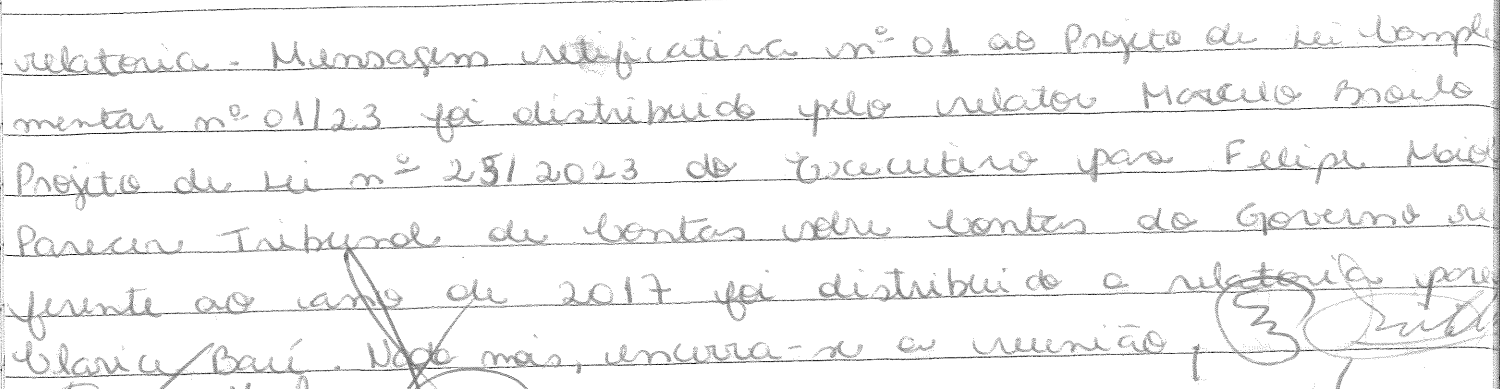 relatoria. Mensagem retificativa nº 01 ao Projeto de Lei Comple
mentar nº 01/23 foi distribuido pelo relator Marcelo
Projeto de Lei nº 25/2023 do Executivo para Felipe Maio
Parecer Tribunal de Contas sobre Contas do Governo re
ferente ao ano de 2017 foi distribuido a relatoria para
Clarice Baú. Nada mais, encerra-se a reunião,